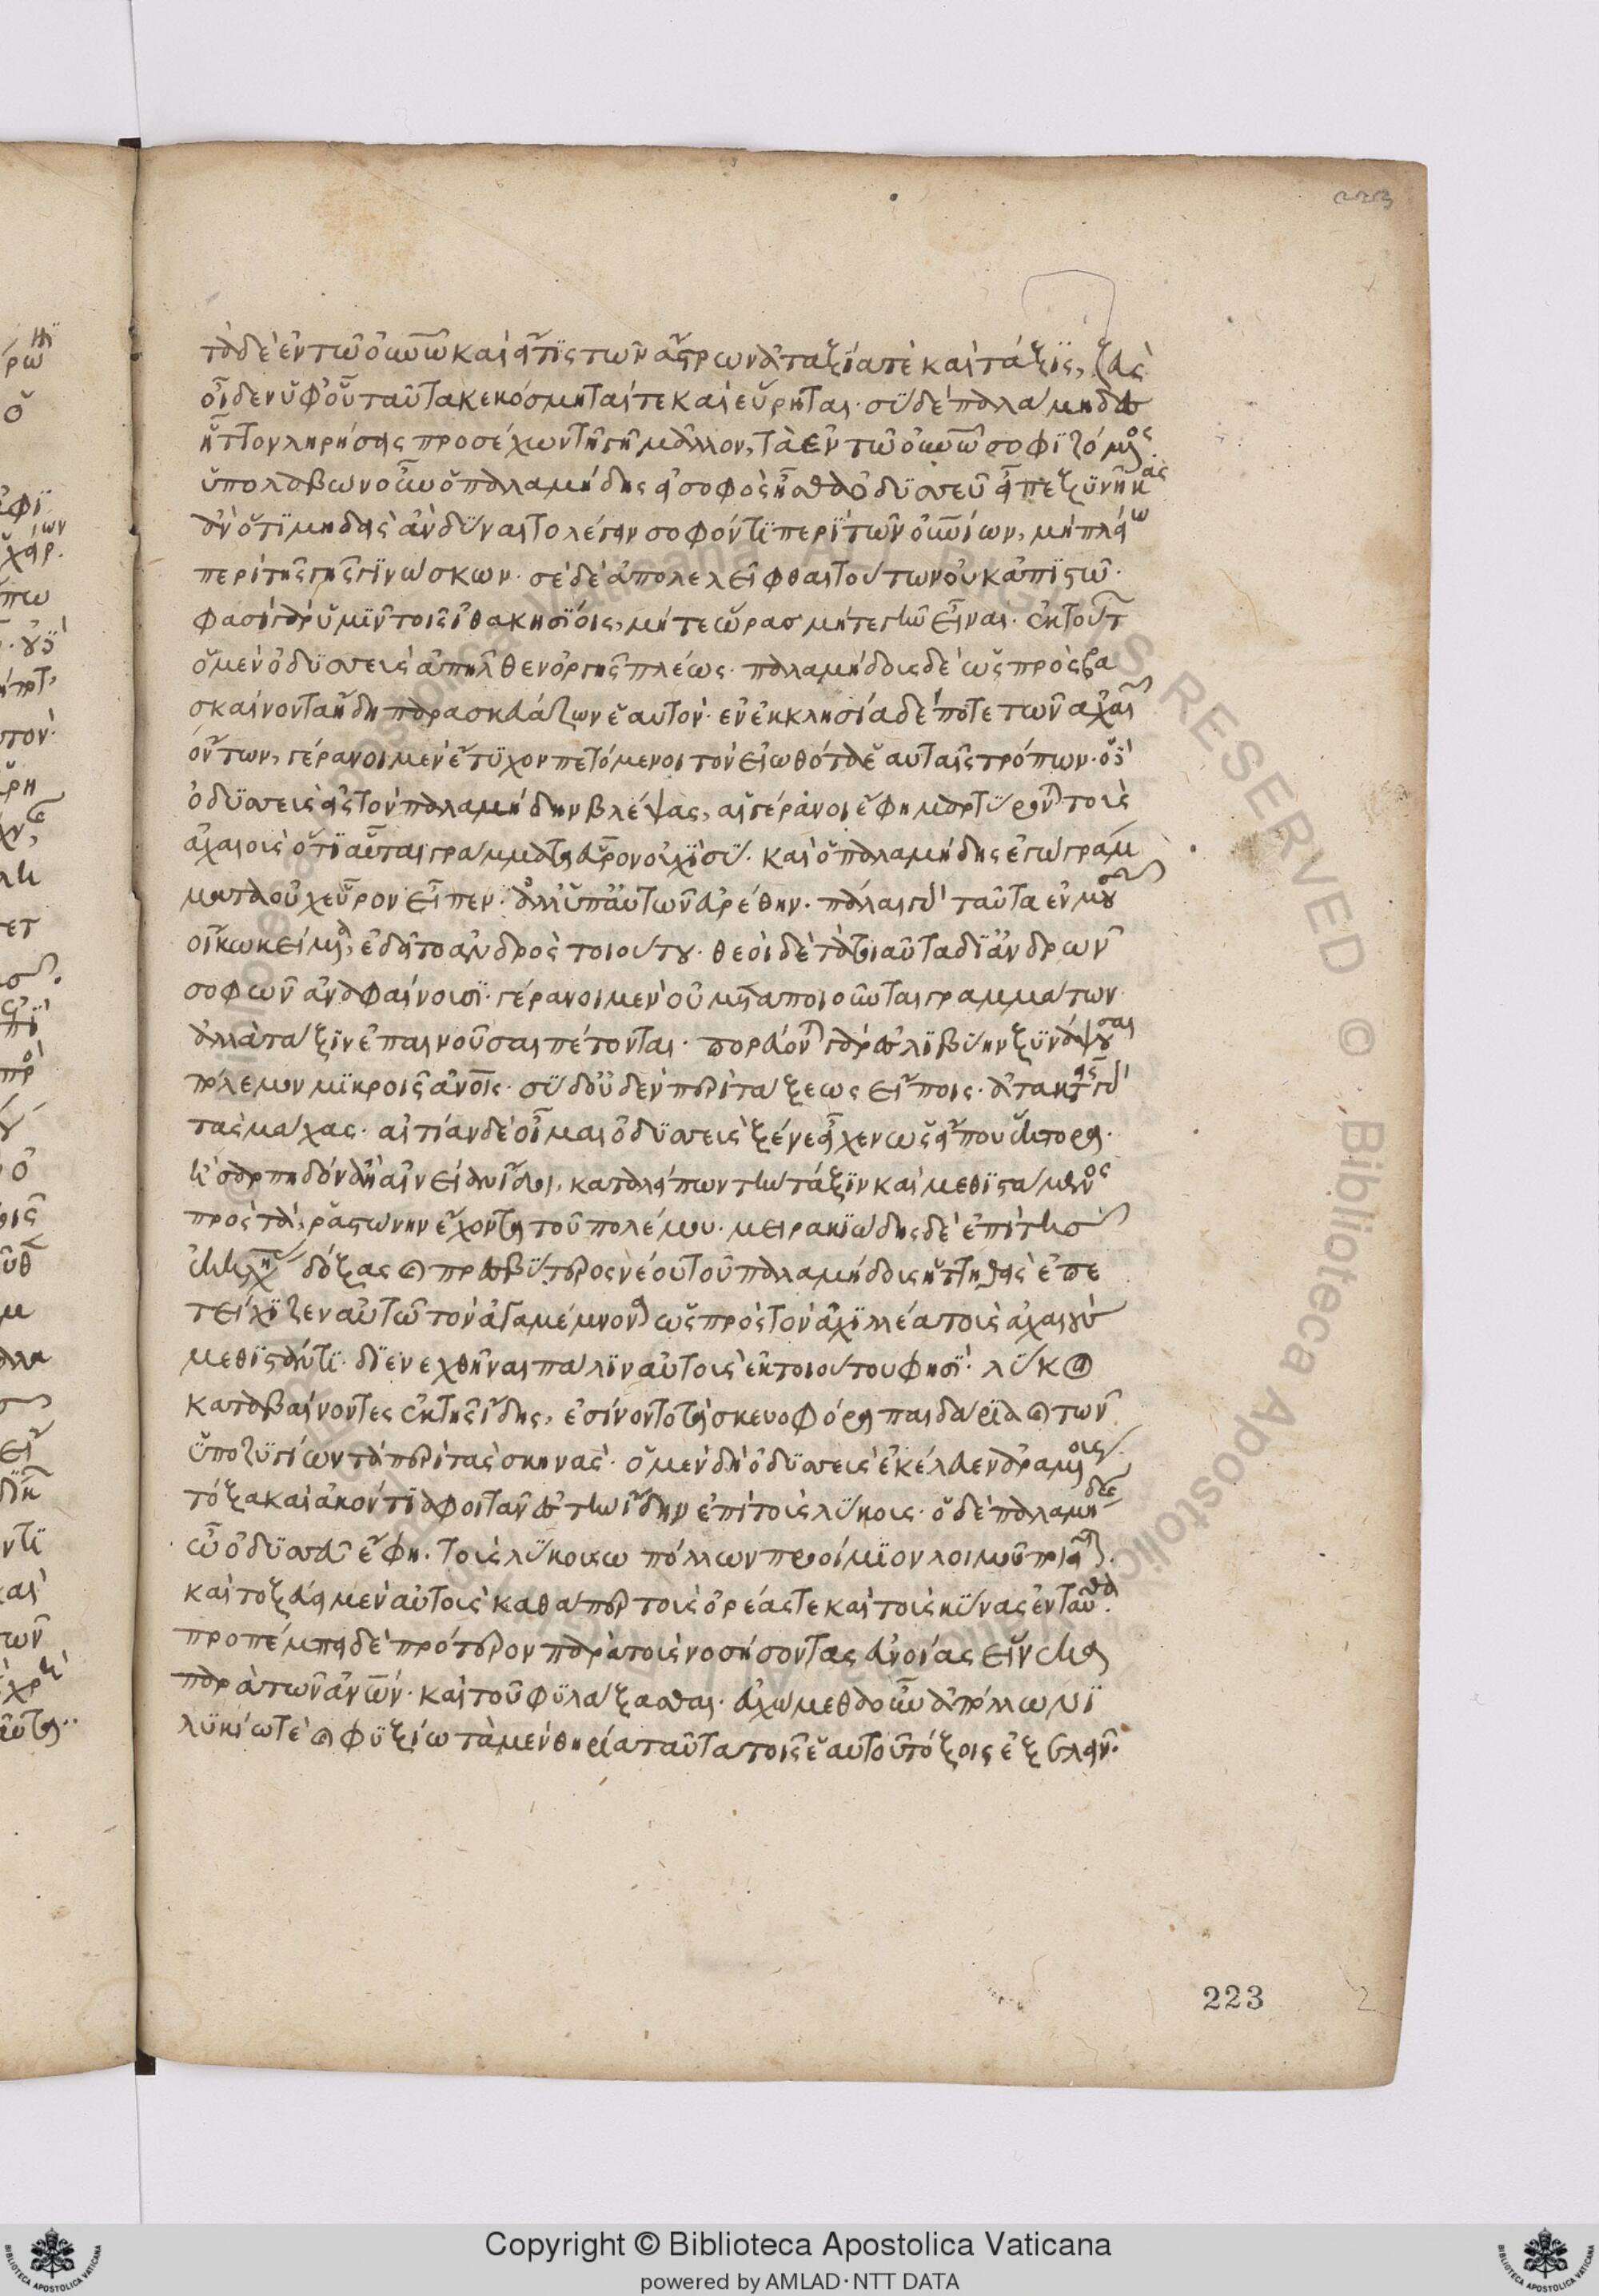 τὰ δὲ ἐν τῶ οὐνῶ καὶ εἴ τις τῶν ἄστρων ἀταξία τὲ καὶ τάξις, ζεὺς
οἶδεν ὑφ οὗ ταῦτα κεκόσμηται τε καὶ εὕρηται. σὺ δὲ παλάμηδες
ἧττον ληρήσεις προσέχων τῆ γῆ μᾶλλον, ἢ τὰ ἐν τῶ οὐνῶ σοφιζόμενος.
ὑπολαβων οὖν ὁ παλαμήδης εἰ σοφὸς ἦσθα ὀδυσσεῦ εἶπε ξυνῆκας
ἂν ὅτι μηδεὶς ἂν δύναιτο λέγειν σοφόν τι περὶ τῶν οὐνίων, μὴ πλείω
περὶ τῆς γῆς γινώσκων. σὲ δὲ ἀπολελεῖφθαι τούτων οὐκ ἀπιστῶ.
φασὶ γὰρ ὑμῖν τοῖς ἰθακησίοις, μήτε ὥρας μήτε γῆν εἶναι. ἐκ τούτ
ὁ μὲν ὀδυσσεὺς ἀπῆλθεν ὀργῆς πλέως. παλαμήδους δὲ ὡς πρὸς βα
σκαίνοντα ἤδη παρασκευάζων ἑαυτόν. ἐν ἐκκλησία δέ ποτε τῶν ἀχαι
ὄντων, γέρανοι μὲν ἔτυχον πετόμενοι τὸν εἰωθότα ἑαυταῖς τρόπων. ὁ δὲ
ὀδυσσεὺς εἰς τὸν παλαμήδην βλέψας, αἱ γέρανοι ἔφη μαρτύρονται τοὺς
ἀχαιοὺς ὅτι αὗται γράμματα εὗρον οὐχὶ σύ. καὶ ὁ παλαμήδης ἐγὼ γράμ
ματα οὐχ εὗρον εἶπεν. ἀλλ ὑπ αὐτῶν εὑρέθην. πάλαι γὰρ ταῦτα ἐν μουσῶν
οἴκω κείμενα, ἐδεῖτο ἀνδρὸς τοιούτου. θεοὶ δὲ τὰ τοιαῦτα δι ἀνδρῶν
σοφῶν ἀναφαίνουσι. γέρανοι μὲν οὐ μεταποιοῦνται γραμμάτων
ἀλλὰ τάξιν ἐπαινοῦσαι πέτονται. πορεύονται γὰρ ἐς λιβύην ξυνάψουσαι
πόλεμον μικροῖς ἀνοις. σὺ δ οὐδὲν περὶ τάξεως εἴποις. ἀτακτεῖς γὰρ
τὰς μάχας. αἰτίαν δὲ οἶμαι ὀδυσσεὺς ξένε εἶχεν ὡς εἴ που ἕκτορα.
ἢ σαρπηδόνα ἢ αἰνείαν ἴδοι, καταλείπων τὴν τάξιν καὶ μεθιστάμενος
πρὸς τὰ ῥαστώνην ἔχοντα τοῦ πολέμου. μειρακιώδης δὲ ἐπὶ τῆς
ἐκκλησίας δόξας καὶ πρεσβύτερος νέου τοῦ παλαμήδους ἡττηθεὶς ἐπε
τείχιζεν αὐτῶ τὸν ἀγαμέμνονα ὡς πρὸς τὸν ἀχιλλέα τοὺς ἀχαιοὺς
μεθιστάντι. διενεχθῆναι πάλιν αὐτοὺς ἐκ τοιούτου φησί. λύκοι
καταβαίνοντες ἐκ τῆς ἴδης, ἐσίνοντο τὰ σκευοφόρα παιδάρια καὶ τῶν
ὑποζυγίων τὰ περὶ τὰς σκηνάς. ὁ μὲν δὴ ὀδυσσεὺς ἐκέλευεν ἀραμένους
τόξα καὶ ἀκόντια φοιτᾶν ἐς τὴν ἴδην ἐπὶ τοὺς λύκους. ὁ δὲ παλαμήδης
ὦ ὀδυσσεῦ ἔφη. τοὺς λύκους ὁ ἀπόλλων προοίμιον λοιμοῦ ποιεῖται.
καὶ τοξεύει μὲν αὐτοὺς καθάπερ τοὺς ὀρέας τε καὶ τοὺς κύνας ἐνταῦθα
προπέμπει δὲ πρότερον παρὰ τοὺς νοσήσοντας εὐνοίας εἵνεκα
παρὰ τῶν ἀνων. καὶ τοῦ φυλάξασθαι. εὐχώμεθα οὖν ἀπόλλωνι
λυκίω τὲ καὶ φυξίω τὰ μὲν θηρία ταῦτα τοῖς ἑαυτοῦ τόξοις ἐξελεῖν.
223
Copyright © Biblioteca Apostolica Vaticana
powered by AMLAD·NTT DATA